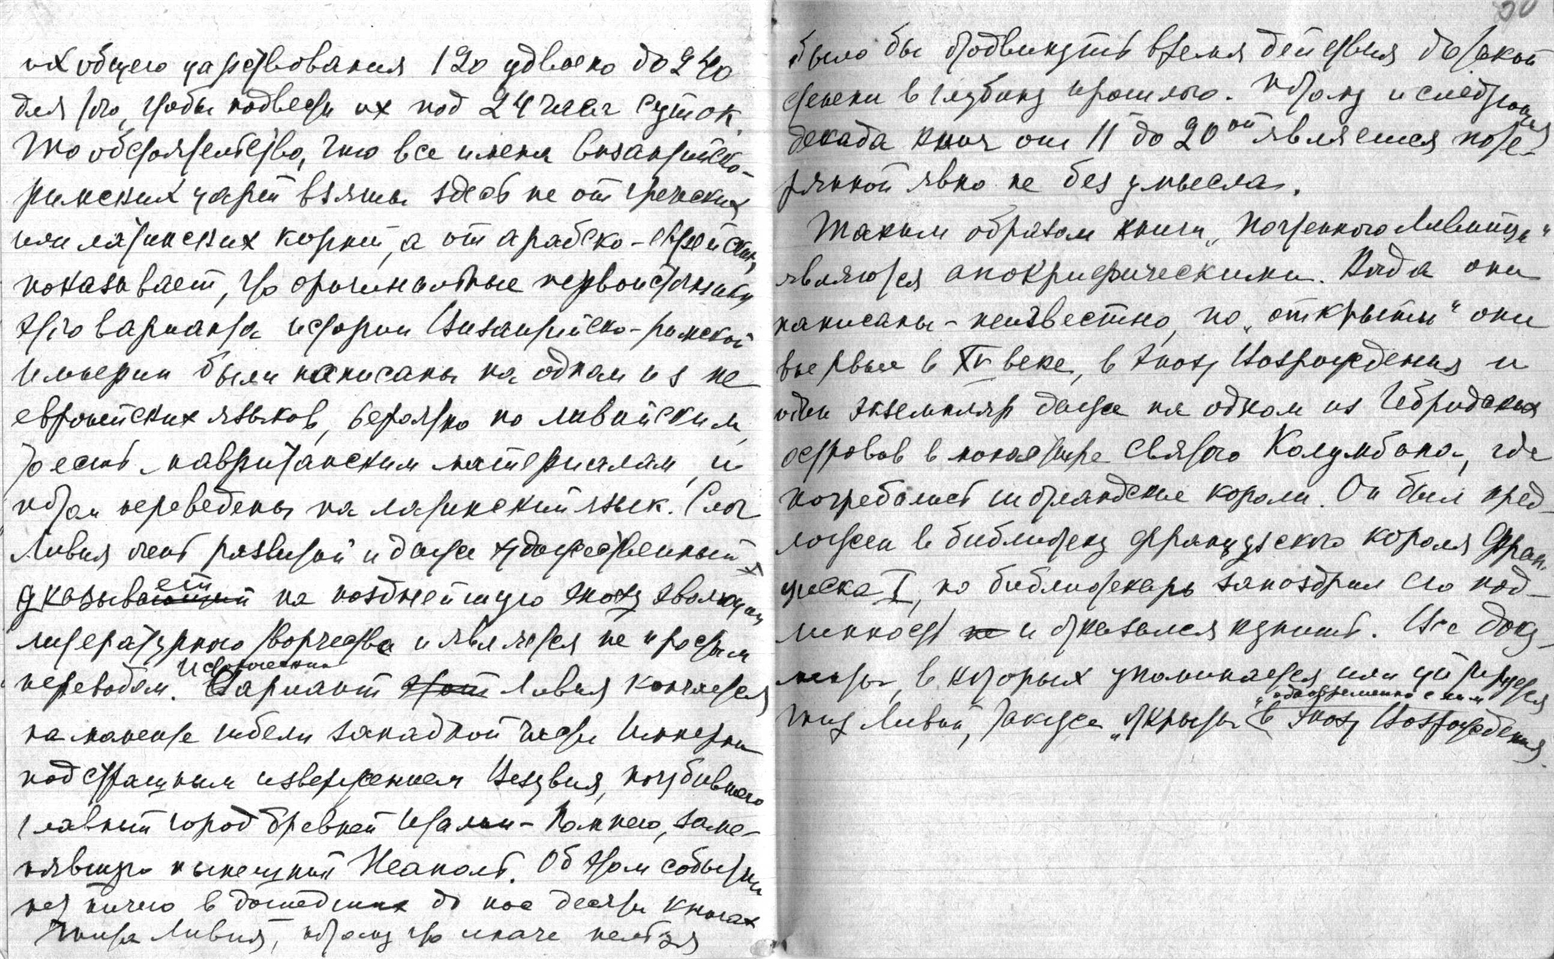 их общего царствования 120 удвоено до 240
для того, чтобы подвести их под 24 часа суток.
То обстоятельство, что все имена Византийско-
римских царей взяты здесь не от греческих
или латинских корней, а от арабско-еврейских,
показывает, что оригинальные первоисточники
этого варианта истории Византийско-римской
Империи были написаны на одном из не
европейских языков, вероятно по ливийским,
то есть мавританским материалам, и
потом переведены на латинский язык. Слог
Ливия очень развитой и даже художественный
указывает на позднейшую эпоху эволюции
литературного творчества и является не простым
переводом. Вариант Ливия кончается
на моменте гибели западной части Империи
под страшным извержением Везувия, погубившего
главный город древней Италии - Помпею, заме-
нявшую нынешний Неаполь. Об этом событии
нет ничего в дошедших до нас десяти книгах
Тита Ливия, потому что иначе нельзя
50
было бы отодвинуть время действия до такой
степени в глубину прошлого. Потому и следующая
декада книг от 11 до 20ой является поте-
рянной явно не без умысла.
Таким образом книги „Почтенного Ливийца“
являются апокрифическими. Когда они
написаны - неизвестно, но „открыты“ они
впервые в XV веке, в эпоху Возрождения и
один экземпляр даже на одном из Гебридских
островов в монастыре Святого Колумбана, где
погребались шотландские короли. Он был пред-
ложен в библиотеку французского короля Фран-
циска I, но библиотекарь заподозрил его под-
линность и отказался купить. Все доку-
менты, в которых упоминается или цитируется
одновременно с ним
Тит Ливий, также „открыты“ в эпоху Возрождения.